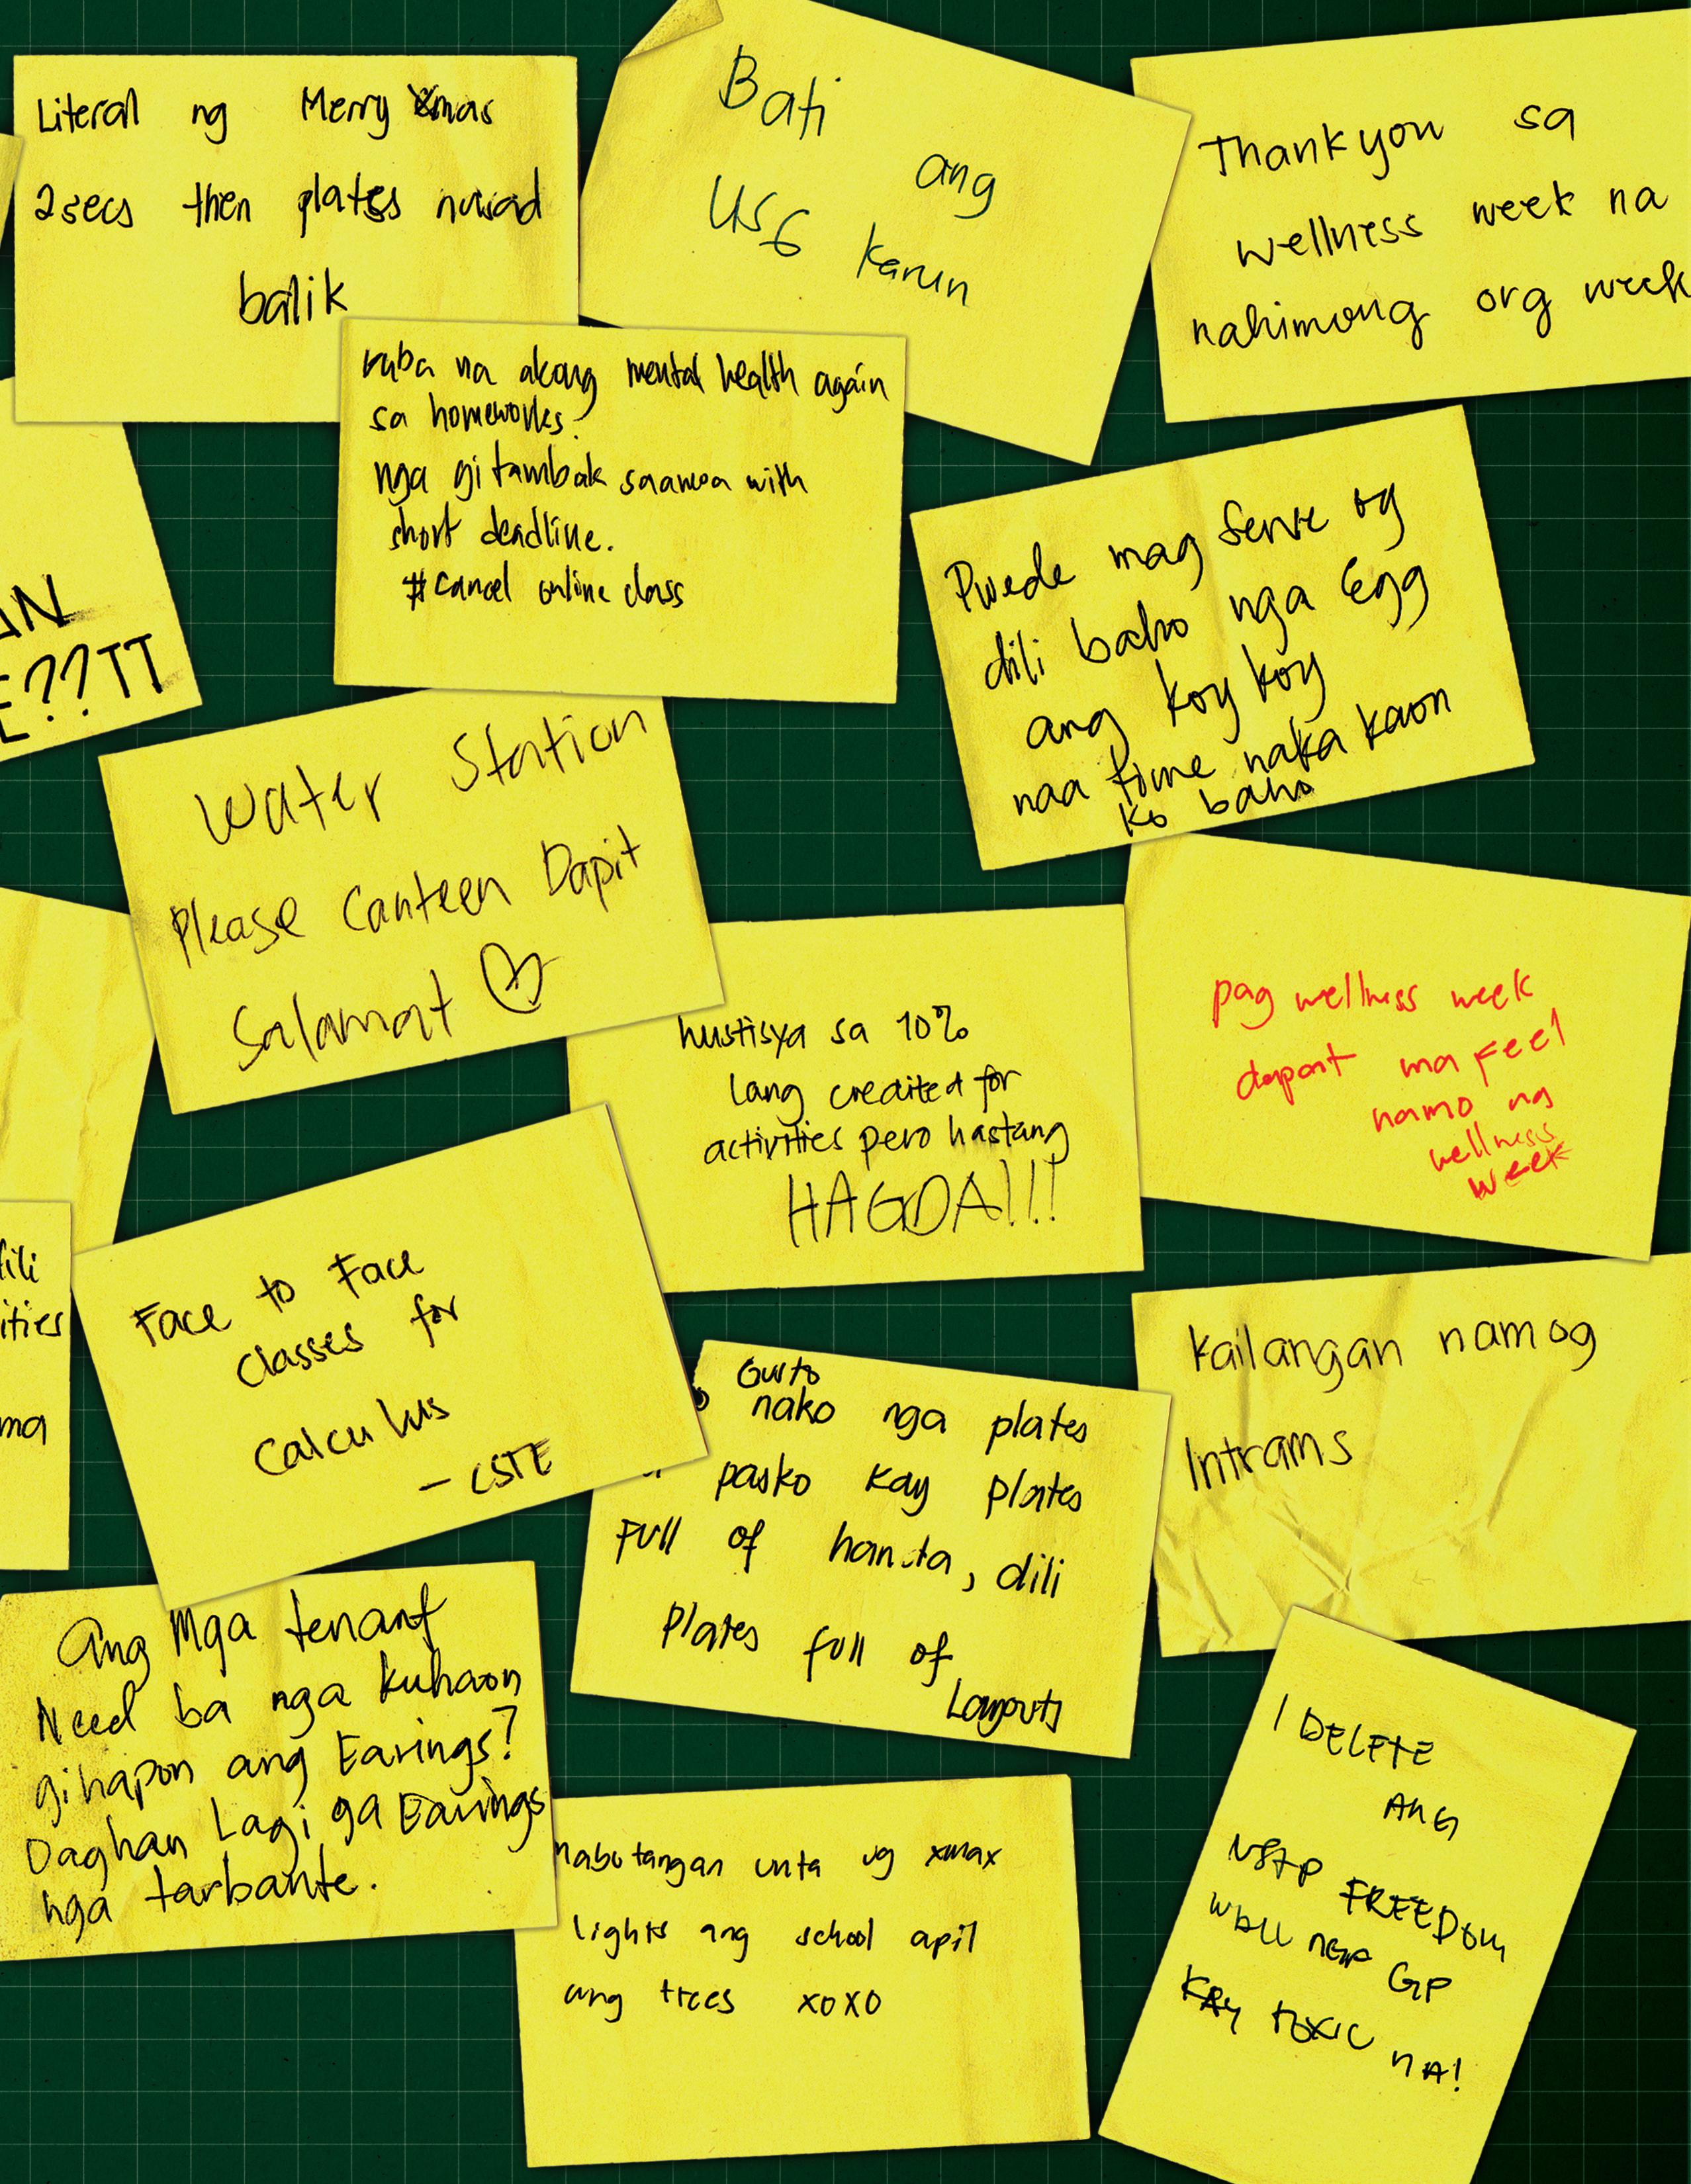 Literal ng Merry Xmas
2secs then plates
balik
Bati
ang
USG karun
Thank you sa
wellness week na
nahimong org week
ruba na akong mental health again
sa homeworks.
nga gi tambak saamoa with
short deadline.
#cancel online class
Pwede mag serve og
dili baho nga Egg
ang koy koy
naa time naka kaon
ko baho
AN
E??TT
Water Station
Please Canteen Dapit
Salamat
hustisya sa 10%
lang credited for
activities pero hastang
HAGDA!!!
pag wellness week
dapat ma feel
namo ng
wellness
week
ili
ities
ma
Face to Face
classes for
Calculus
- CSTE
Gusto
nako nga plates
pasko kay plates
Full of handa, dili
Plates full of
Layouts
Kailangan namog
Intrams
Ang Mga tenant
Need ba nga kuhaon
gihapon ang Earings?
Daghan Lagi ga Earings
nga tarbante.
mabutangan unta ug xmax
lights ang school apil
ang trees xoxo
I DELETE
ANG
NSTP FREEDOM
WALL GP
KAY TOXIC NA!